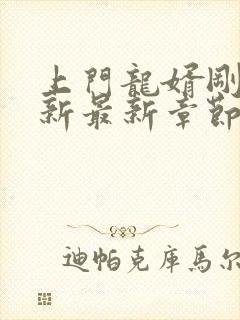 上門龍婿剛
新最新章節
迪帕克庫馬尔